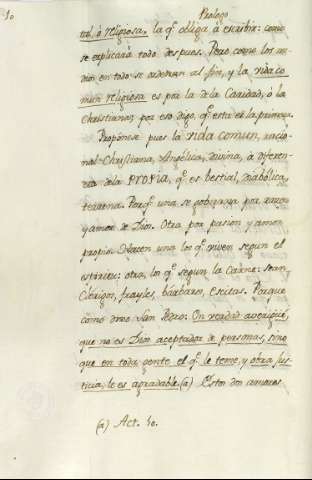 10
Prologo
tal, ò religiosa, la qe obliga à escribir: como
se explicará todo despues. Pero como los me
dios en todo se ordenan al fin, y la vida co
mun religiosa es por la de la Caridad, ò la
Christiana; por eso digo, qe esta es la primera.
Propónese pues la vida comun, racio
nal-Christiana, Angélica, divina, à diferen
cia de la propia, qe es bestial, diabólica,
terrena. Porqe una se gobierna por razon
y amor de Dios. Otra por pasion y amor
propio. Hacen una los qe viven segun el
espiritu: otra, los qe segun la carne: sean
Clérigos, frayles, bárbaros, escitas. Porque
como dixo San Pedro: En verdad averigüé,
que no es Dios aceptador de personas, sino
que en toda gente el qe le teme, y obra jus
ticia, le es agradable. (a) Estos dos amores
(a) Act. 10.